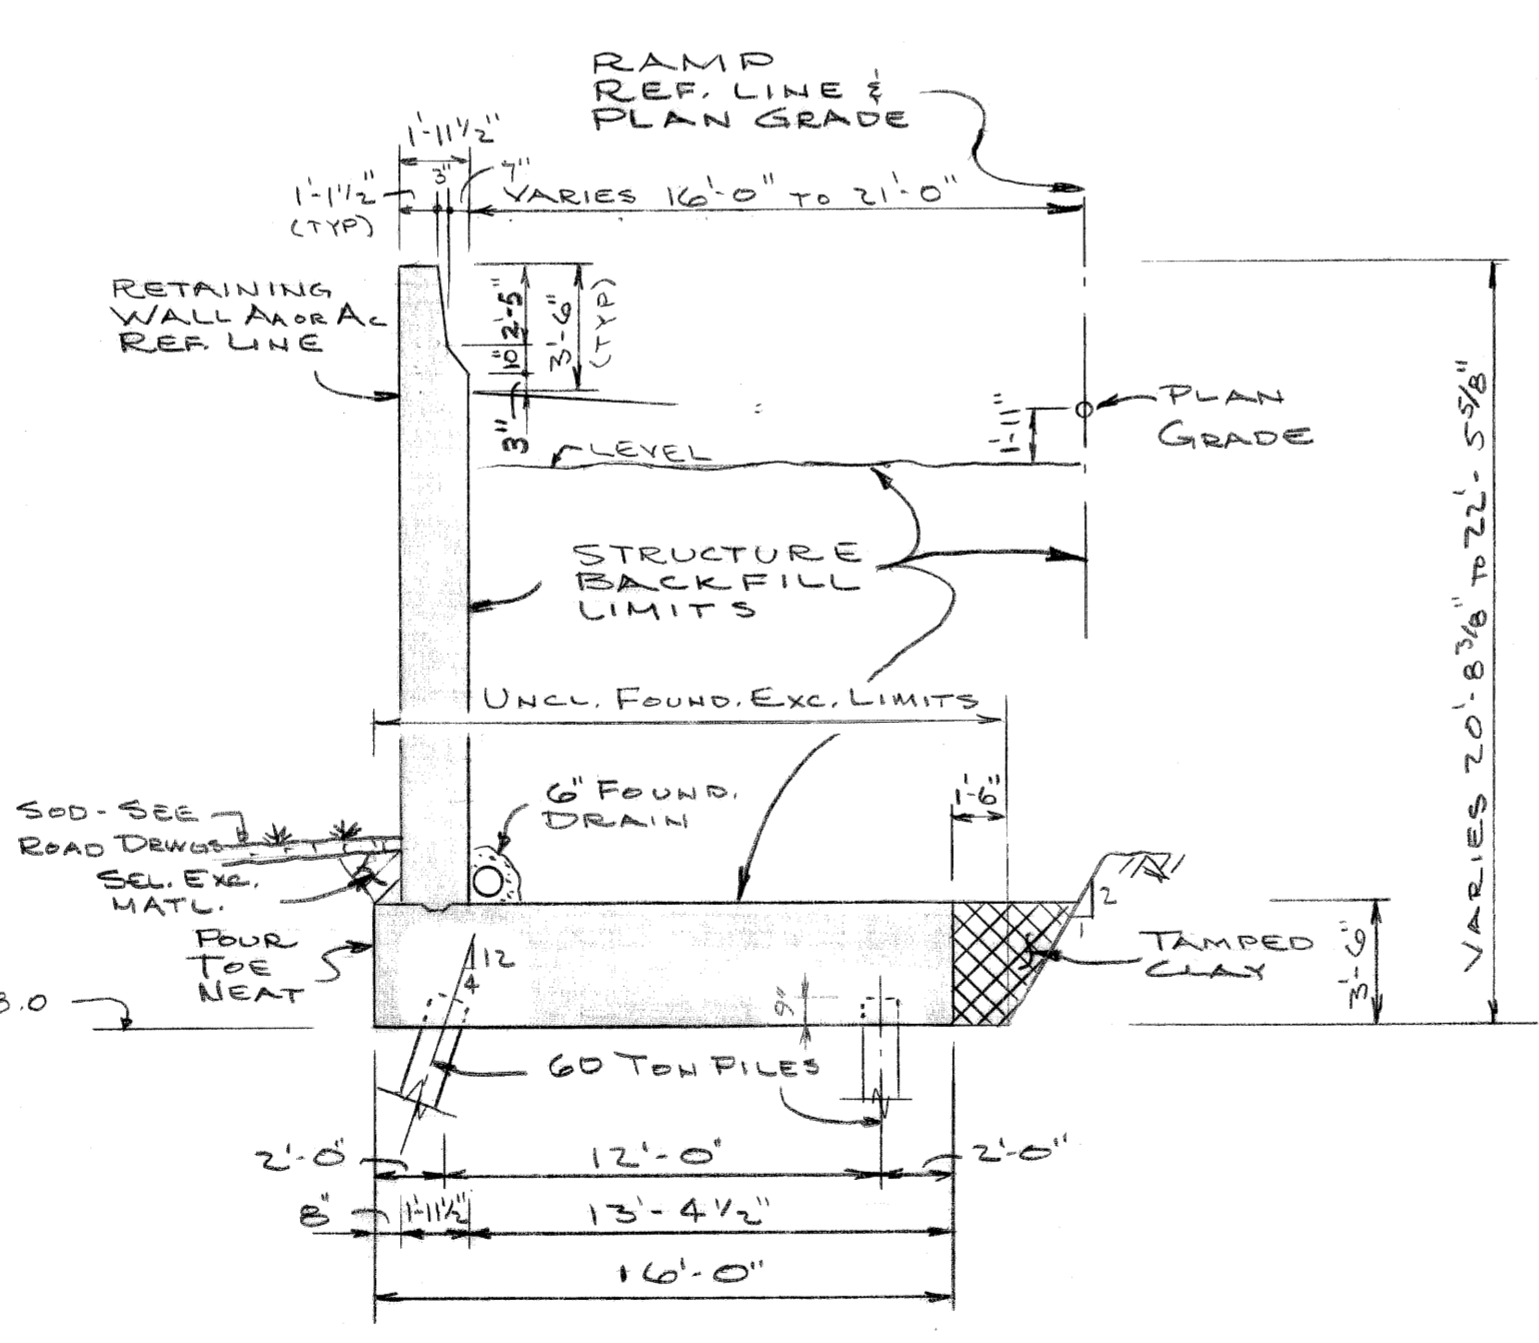 RAMP
REF. LINE &
PLAN GRADE
1'-11 1/2"
3"
7"
1'-1 1/2"
(TYP)
VARIES 16'-0" TO 21'-0"
RETAINING
WALL AA OR AC
REF. LINE
2'-5"
10"
3"
3'-6"
(TYP)
LEVEL
1'-11"
PLAN
GRADE
VARIES 20'-8 3/8" TO 22'-5 5/8"
STRUCTURE
BACKFILL
LIMITS
UNCL. FOUND. EXC. LIMITS
1'-6"
6" FOUND.
DRAIN
SOD-SEE
ROAD DRWGS
SEL. EXC.
MATL.
POUR
TOE
NEAT
12
4
9"
2
1
TAMPED
CLAY
3'-6"
3.0
60 TON PILES
2'-0"
12'-0"
2'-0"
8"
1'-11 1/2"
13'-4 1/2"
16'-0"